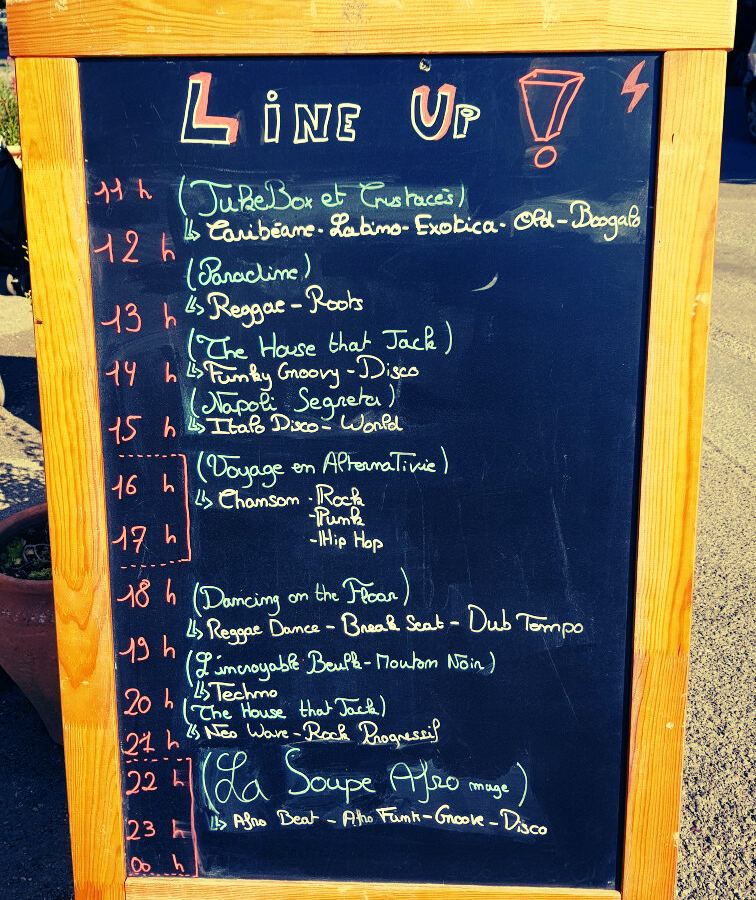 LiNE UP !
11 h (JukeBox et Crustacés)
↳ Caribéane - Latino - Exotica - Old - Boogalo
12 h
(Paracline)
↳ Reggae - Roots
13 h
(The House that Jack)
14 h ↳ Funky Groovy - Disco
(Napoli Segreta)
15 h ↳ Italo Disco - World
(Voyage en AlternaTivie)
16 h ↳ Chanson - Rock
- Punk
17 h - Hip Hop
18 h (Dancing on the Floor)
↳ Reggae Dance - Break Seat - Dub Tempo
19 h
(L'incroyable Beulk - Mouton Noir)
↳ Techno
20 h (The House that Jack)
21 h ↳ Néo Wave - Rock Progressif
22 h (La Soupe Afro mage)
23 h ↳ Afro Beat - Afro Funk - Groove - Disco
00 h